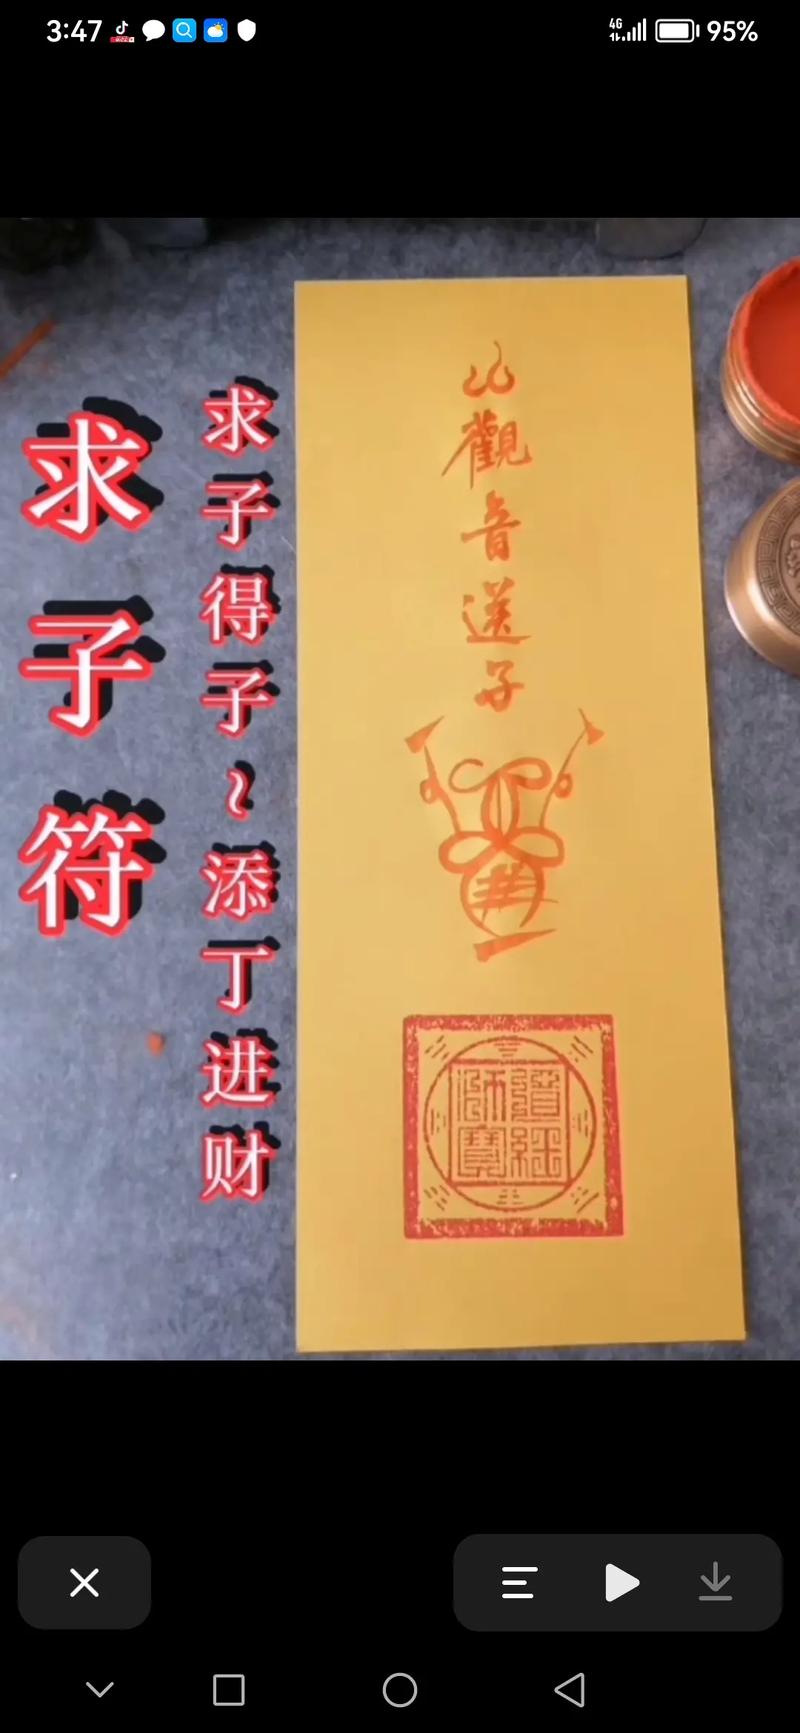 3:47
4G
95%
求子符
求子得子~添丁进财
觀音送子
師寶
道經